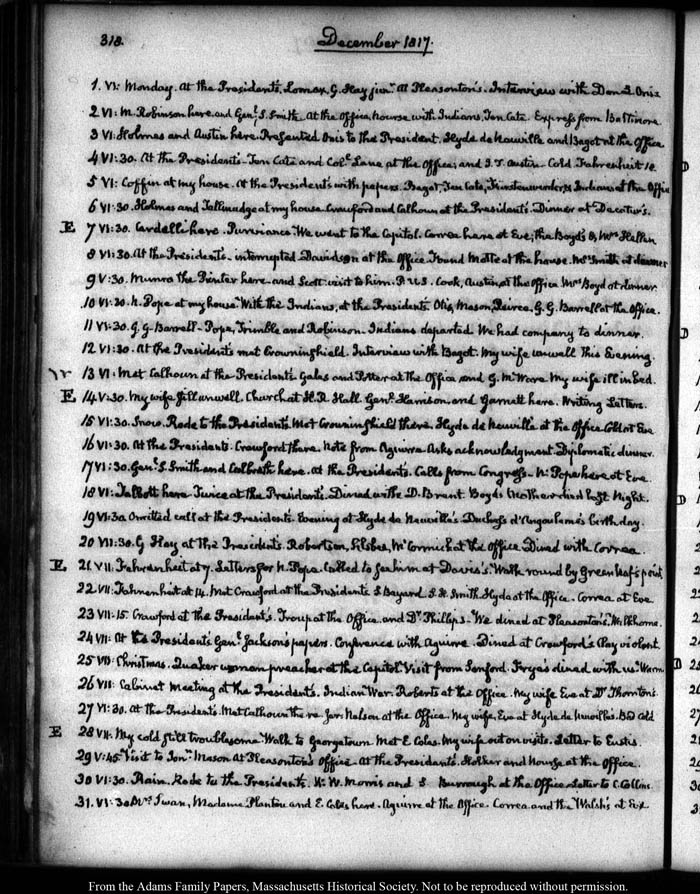 318.
December 1817.
1. VI: Monday. At the President's, Lomax, G. Hay junr. At Pleasonton's. Interview with Don L. Onis
2 VI: M. Robinson here and Genl. S. Smith. At the Office, house with Indians, Ten Cate. Express from Baltimore
3 VI: Holmes and Austin here. Presented Onis to the President. Hyde de Neuville and Bagot at the Office
4 VI:30. At the President's. Ten Cate and Colo. Lane at the Office; and J. T. Austin. Cold Fahrenheit 10.
5 VI: Coffin at my house. At the President's with papers. Bagot, Ten Cate, Indians at the Office
6 VI:30. Holmes and Tallmadge at my house. Crawford and Calhoun at the President's. Dinner at Decatur's.
E 7 VI:30. Cardelli here. Purviance. We went to the Capitol. Correa here at Eve, the Boyd's &, Mrs Hellen
8 VI:30. At the President's. interrupted Davidson at the Office. Found at the house. Mr Smith at dinner
9 V:30. Munro the Printer here and Scott visit to him. P.U.S. Cook, Austin, at the Office Mrs Boyd at dinner.
10 VI:30. N. Pope at my house. With the Indians, at the President's. Otis, Mason, Peirce. G. G. Barrell at the Office.
11 VI:30. G. G. Barrell. Pope, Trimble and Robinson. Indians departed. We had company to dinner.
12 VI:30. At the President's met Crowninshield. Interview with Bagot. My wife unwell this Evening.
13 VI: Met Calhoun at the President's Gales and Potter at the Office and G. My wife ill in bed.
E 14 V:30. My wife still unwell. Church at H.R. Hall. Genl. Harrison, and Garnett here. Writing Letters.
15 VI:30. Snow. Rode to the President's. Met Crowninshield there. Hyde de Neuville at the Office. Colds at Eve
16 VI:30. At the President's. Crawford there. Note from Aguirre. Asks acknowledgment. Diplomatic dinner.
17 VI:30. Genl. S. Smith and Colbreth here. At the President's. Calls from Congress. N. Pope here at Eve
18 VI: Talbott here. Twice at the President's. Dined with D. Brent. Boyd's Mother died last Night.
19 VI:30 Omitted call at the President's. Evening at Hyde de Neuville's. Duchess d'Angouleme's birth day.
20 VII:30. G Hay at the President's. Robertson, Silsbee, McCormick at the Office. Dined with Correa.
E 21 VII. Fahrenheit at 7. Letters for N. Pope. Called to see him at Davis's. Walk round by Greenleaf's point
22 VII. Fahrenheit at 14. Met Crawford at the President's. S Bayard S. H. Smith. Hyde at the Office. Correa at Eve
23 VII:15. Crawford at the President's. Troup at the Office and Dr. Phillips. We dined at Pleasonton's. Milkhorne.
24 VII: At the President's. Genl. Jackson's papers. Conference with Aguirre. Dined at Crawford's. Clay violent.
25 VII: Christmas. Quaker woman preacher at the Capitol. Visit from Sanford. Frye's dined with us. Warm
26 VII: Cabinet Meeting at the President's. Indian War. Roberts at the Office. My wife Eve at Dr. Thornton's.
27 VI:30. At the President's Met Calhoun there. Jer. Nelson at the Office. My wife, Eve at Hyde de Neuville's. Bad Cold
E 28 VII: My cold still troublesome. Walk to Georgetown. Met E. Coles. My wife out on visits. Letter to Eustis.
29 V:45 Visit to Jonn. Mason. At Pleasonton's Office. At the President's. Holker and at the Office.
30 VI:30. Rain. Rode to the President's. W. W. Morris and S Burrough at the Office. Letter to C. Collins.
31. VI:30 Mrs. Swan, Madame Plantou and E. Coles here. Aguirre at the Office. Correa and the Walsh's at Eve
From the Adams Family Papers, Massachusetts Historical Society. Not to be reproduced without permission.